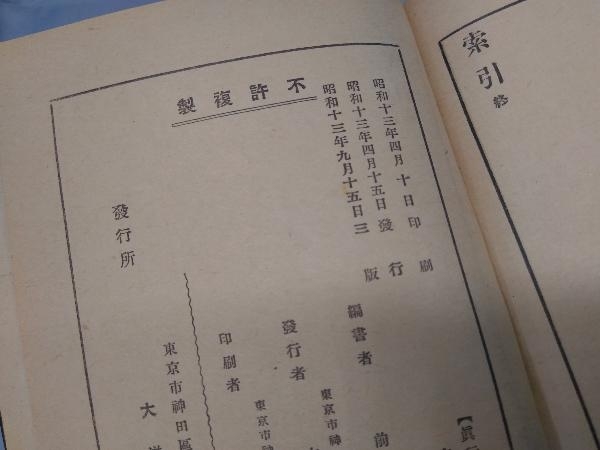 索引 終
昭和十三年四月 十 日 印 刷
昭和十三年四月十五日 發 行
昭和十三年九月十五日 三 版
不許複製
編書者 前
東京市神
發行者
東京市神
印刷者
東京市神田區
發行所 大